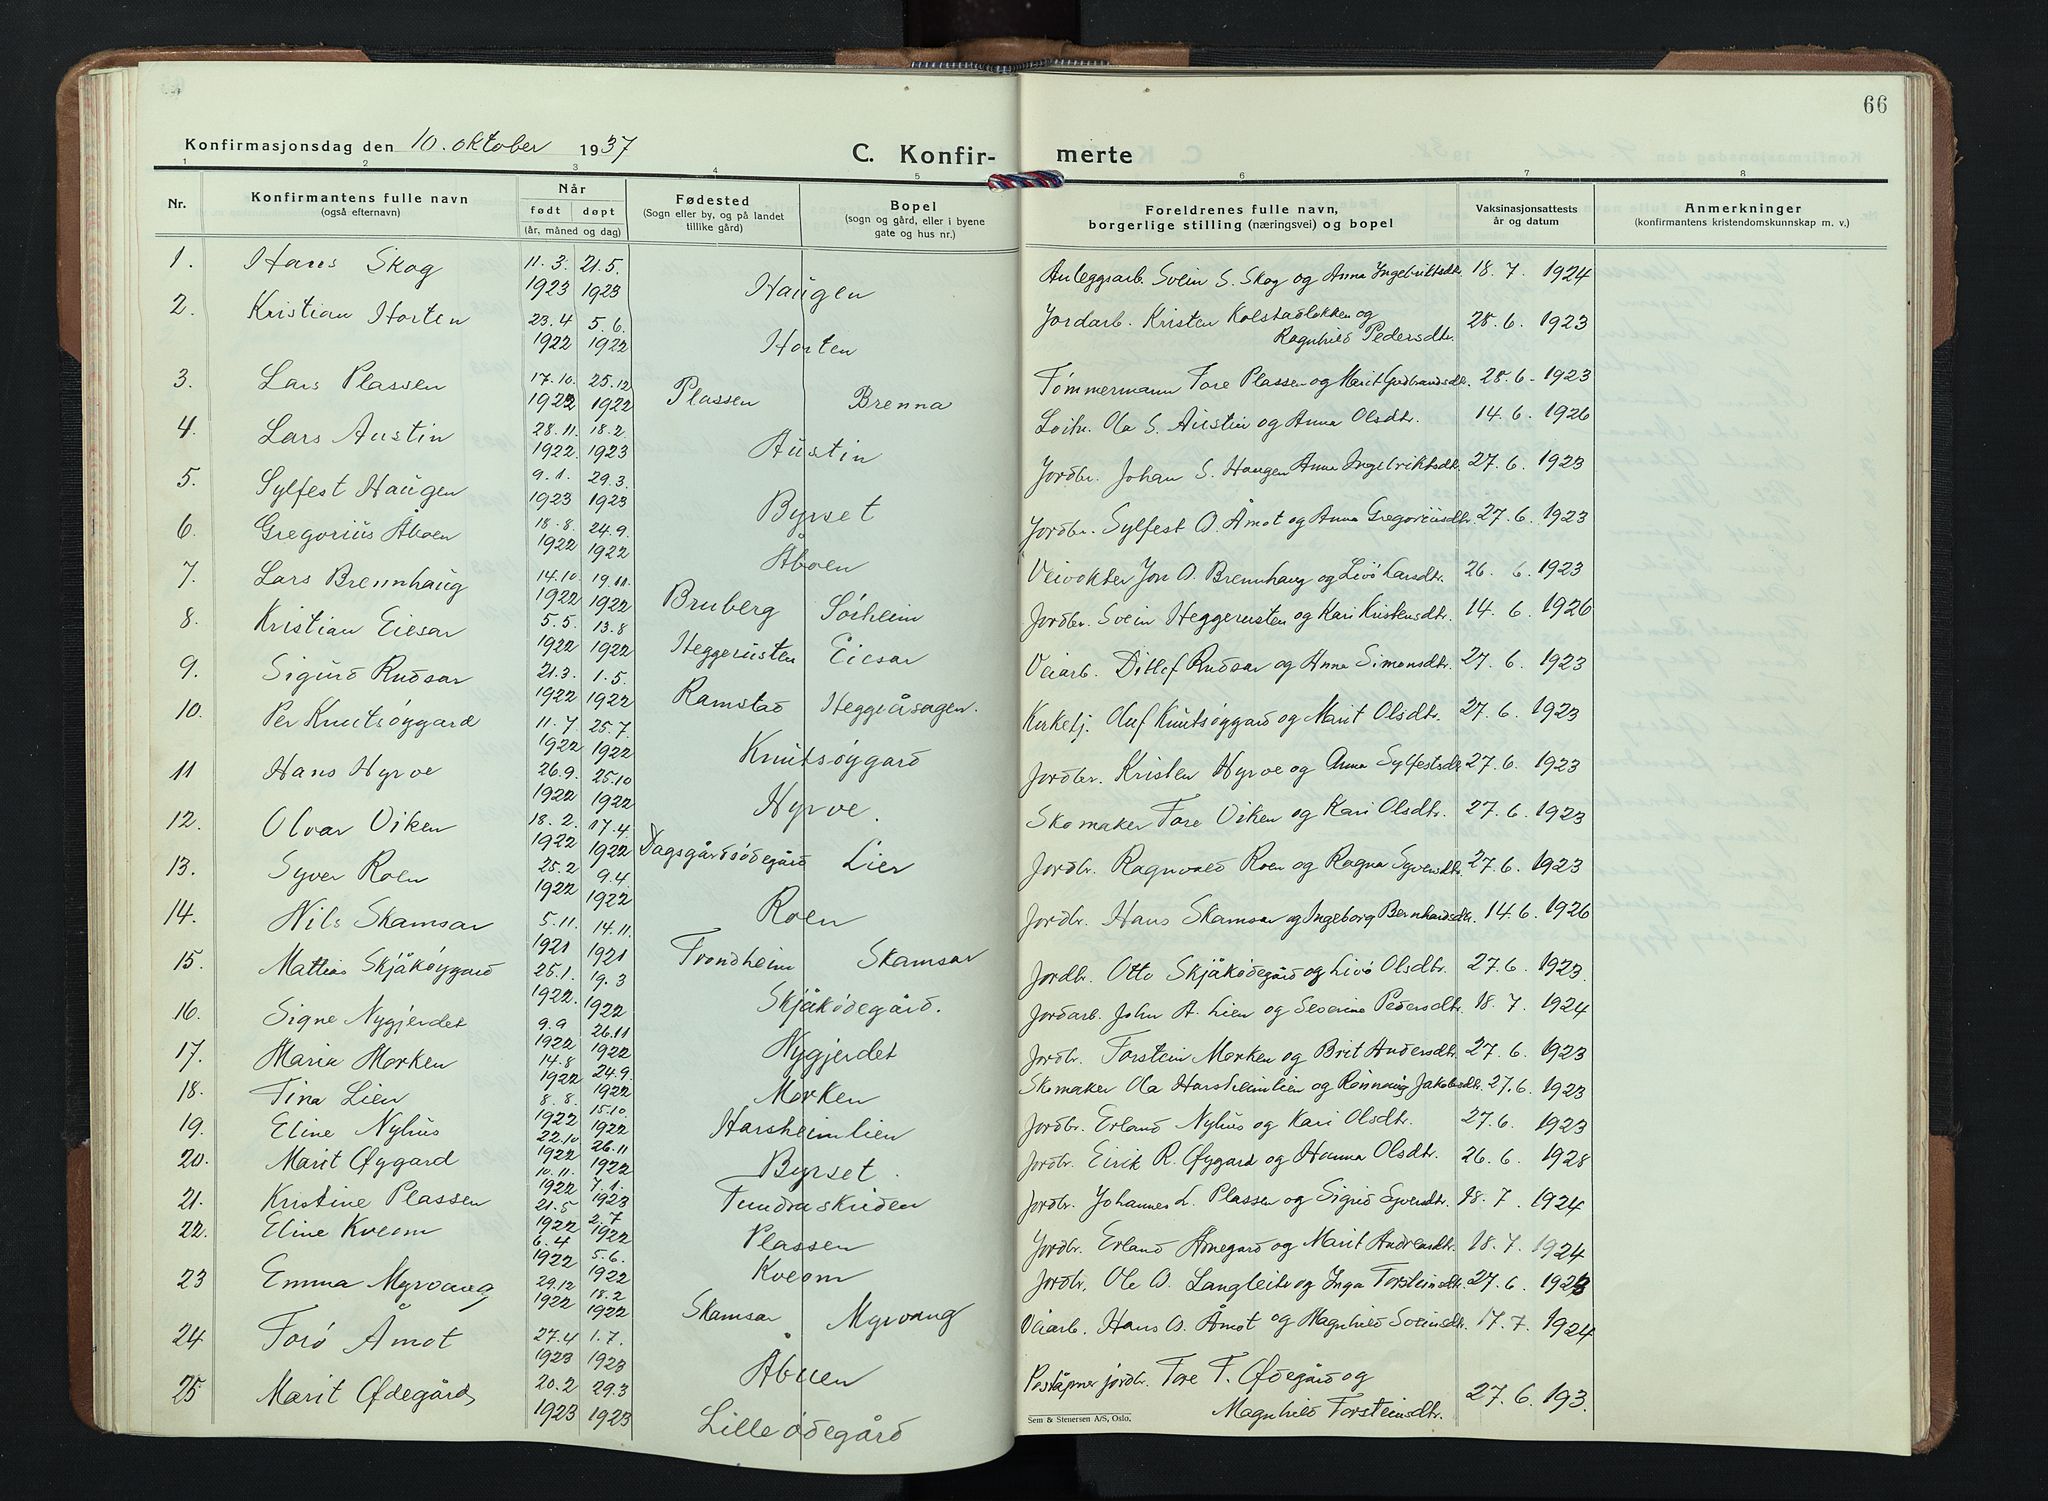 66
Konfirmasjonsdag den 10. oktober 1937
C. Konfir- merte
1 2 3 4 5 6 7 8
Nr.
Konfirmantens fulle navn
(også efternavn)
Når
født døpt
(år, måned og dag)
Fødested
(Sogn eller by, og på landet
tillike gård)
Bopel
(sogn og gård, eller i byene
gate og hus nr.)
Foreldrenes fulle navn,
borgerlige stilling (næringsvei) og bopel
Vaksinasjonsattests
år og datum
Anmerkninger
(konfirmantens kristendomskunnskap m. v.)
1. Hans Skog 11. 3. 1923 21. 5. 1923 Haugen Anleggsarb. Svein S. Skog og Anna Ingebriktsdtr. 18. 7. 1924
2. Kristian Horten 23. 4 1922 5. 6. 1922 Horten Jordarb. Kristen Kolstadløkken og
Ragnhild Pedersdtr. 28. 6. 1923
3. Lars Plassen 17. 10. 1922 25. 12 1922 Plassen Brenna Tømmermann Tore Plassen og Marit Gudbrandsdtr. 28. 6. 1923
4. Lars Austin 28. 11. 1922. 18. 2. 1923 Austin Ola S. Austin og Anna Olsdtr. 14. 6. 1926
5. Sylfest Haugen 9. 1. 1923 29. 3. 1923 Byrset Jordbr. Johan S. Haugen Anna Ingebriktsdtr. 27. 6. 1923
6. Gregorius Åboen 18. 8. 1922 24. 9. 1922 Åboen Jordbr. Sylfest O. Åmot og Anna Gregoriusdtr. 27. 6. 1923
7. Lars Brennhaug 14. 10. 1922 19. 11. 1922 Bruberg Sörheim Veivokter Jon O. Brennhaug og Livö Larsdtr. 26. 6. 1923
8. Kristian Eiesar 5. 5. 1922 13. 8 1922 Heggerusten Eiesar Jordbr. Svein Heggerusten og Kari Kristensdtr. 14. 6. 1926
9. Sigurd Rudsar 21. 3. 1922 1. 5. 1922 Ramstad Heggeåsagen. Veiarb. Ditlef Rudsar og Anna Simensdtr. 27. 6. 1923
10. Per Knutsöygard 11. 7 1922 25. 7. 1922 Knutsöygard Kirketj. Oluf Knutsöygard og Marit Olsdtr. 27. 6. 1923
11 Hans Hyrve 26. 9. 1922 25. 10 1922 Hyrve. Jordbr. Kristen Hyrve og Anna Sylfestsdtr 27. 6. 1923
12. Olvar Viken 18. 2. 1922 17. 4. 1922 Dagsgårdsödegård Lier Skomaker Tore Viken og Kari Olsdtr. 27. 6. 1923
13. Syver Roen 25. 2 1922 9. 4. 1922 Roen Jordbr. Ragnvald Roen og Ragna Syversdtr. 27. 6. 1923
14. Nils Skamsar 5. 11. 1921 14. 11. 1921 Trondheim Skamsar Jordbr. Hans Skamsar og Ingeborg Bernhardsdtr. 14. 6. 1926
15. Mattias Skjåköygard 25. 1. 1922. 19. 3 1922 Skjåködegård. Jordbr. Otto Skjåködegård og Livö Olsdtr. 27. 6. 1923.
16. Signe Nygjerdet 9. 9 1922 26. 11 1922 Nygjerdet Jordarb. John A. Lien og Severine Pedersdtr. 18. 7. 1924
17. Maria Morken 14. 8 1922 24. 9. 1922 Morken Jordbr. Torstein Morken og Brit Andersdtr. 27. 6. 1923
18. Tina Lien 8. 8. 1922 15. 10. 1922 Harsheimlien Skomaker Ola Harsheimlien og Rönnaug Jakobsdtr. 27. 6. 1923
19. Eline Nyhus 22. 10 1922 26. 11 1922 Byrset. Jordbr. Erland Nyhus og Kari Olsdtr. 27. 6. 1923
20. Marit Øygard 10. 11. 1922 7. 1. 1923 Tundraskriden Jordbr. Eirik R. Øygard og Hanna Olsdtr. 26. 6. 1928
21. Kristine Plassen 21. 5 1922 2. 7 1922 Plassen Jordbr. Johannes L. Plassen og Sigrid Syversdtr. 18. 7 1924
22. Eline Kveom 6. 4 1922 5. 6. 1922 Kveom Jordbr. Erland Årnegard og Marit Andreasdtr. 18. 7. 1924
23 Emma Myrvang 29. 12 1922 18. 2 1922 Skamsar Myrvang Jordbr. Ole O. Langleite og Inga Torsteinsdtr. 27. 6. 1923
24 Torö Åmot 27. 4 1923 1. 7. 1923 Åbuen Veiarb. Hans O. Åmot og Magnhild Sveinsdtr. 17. 7. 1924
25 Marit Ødegård 20. 2 1923 29. 3 1923 Lille ödegård Poståpner jordbr. Tore T. Ødegård og
Magnhild Torsteinsdtr. 27. 6. 193.
Sem & Stenersen A/S, Oslo.